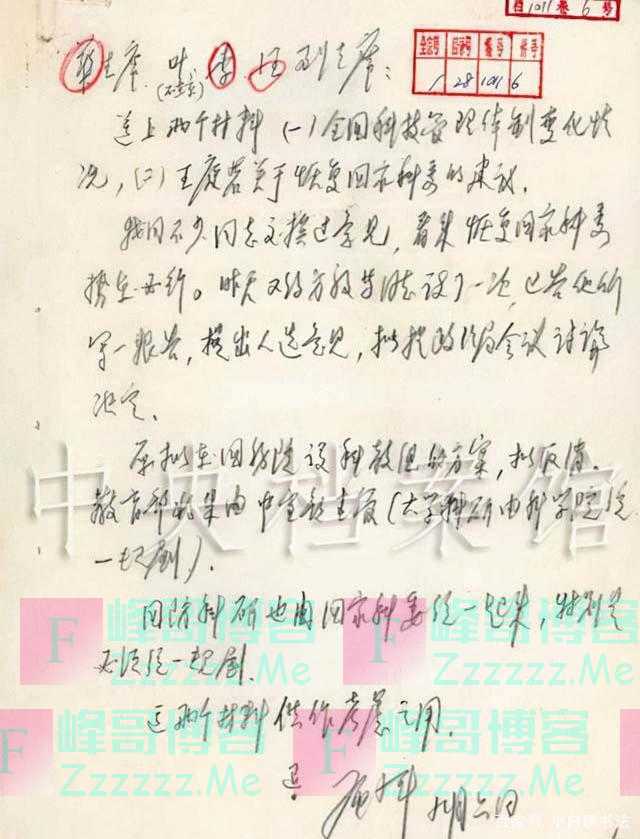 档1011卷6号
华主席、叶(不在京)李、汪副主席：
全宗号 目录号 卷号 件号
1 28 1011 6
送上两个材料(一)全国科技管理体制变化情
况，(二)王庭若关于恢复国家科委的建议。
我同不少同志交换过意见，看来恢复国家科委
势在必行。昨天又约方毅等同志谈了一次，已告他们
写一报告，提出人选意见，拟提政治局会议讨论
决定。
原拟在国务院设科教组的方案，拟取消。
教育部就由中宣部主管(大学科研由科学院统
一规划)。
国防科研也由国家科委统一起来，特别是
必须统一规划。
这两个材料供作考虑之用。
中央档案馆
F 峰哥博客
Zzzzzz.Me
F 峰哥博客
Zzzzzz.Me
F 峰哥博客
Zzzzzz.Me
F 峰哥博客
Zzzzzz.Me
六日